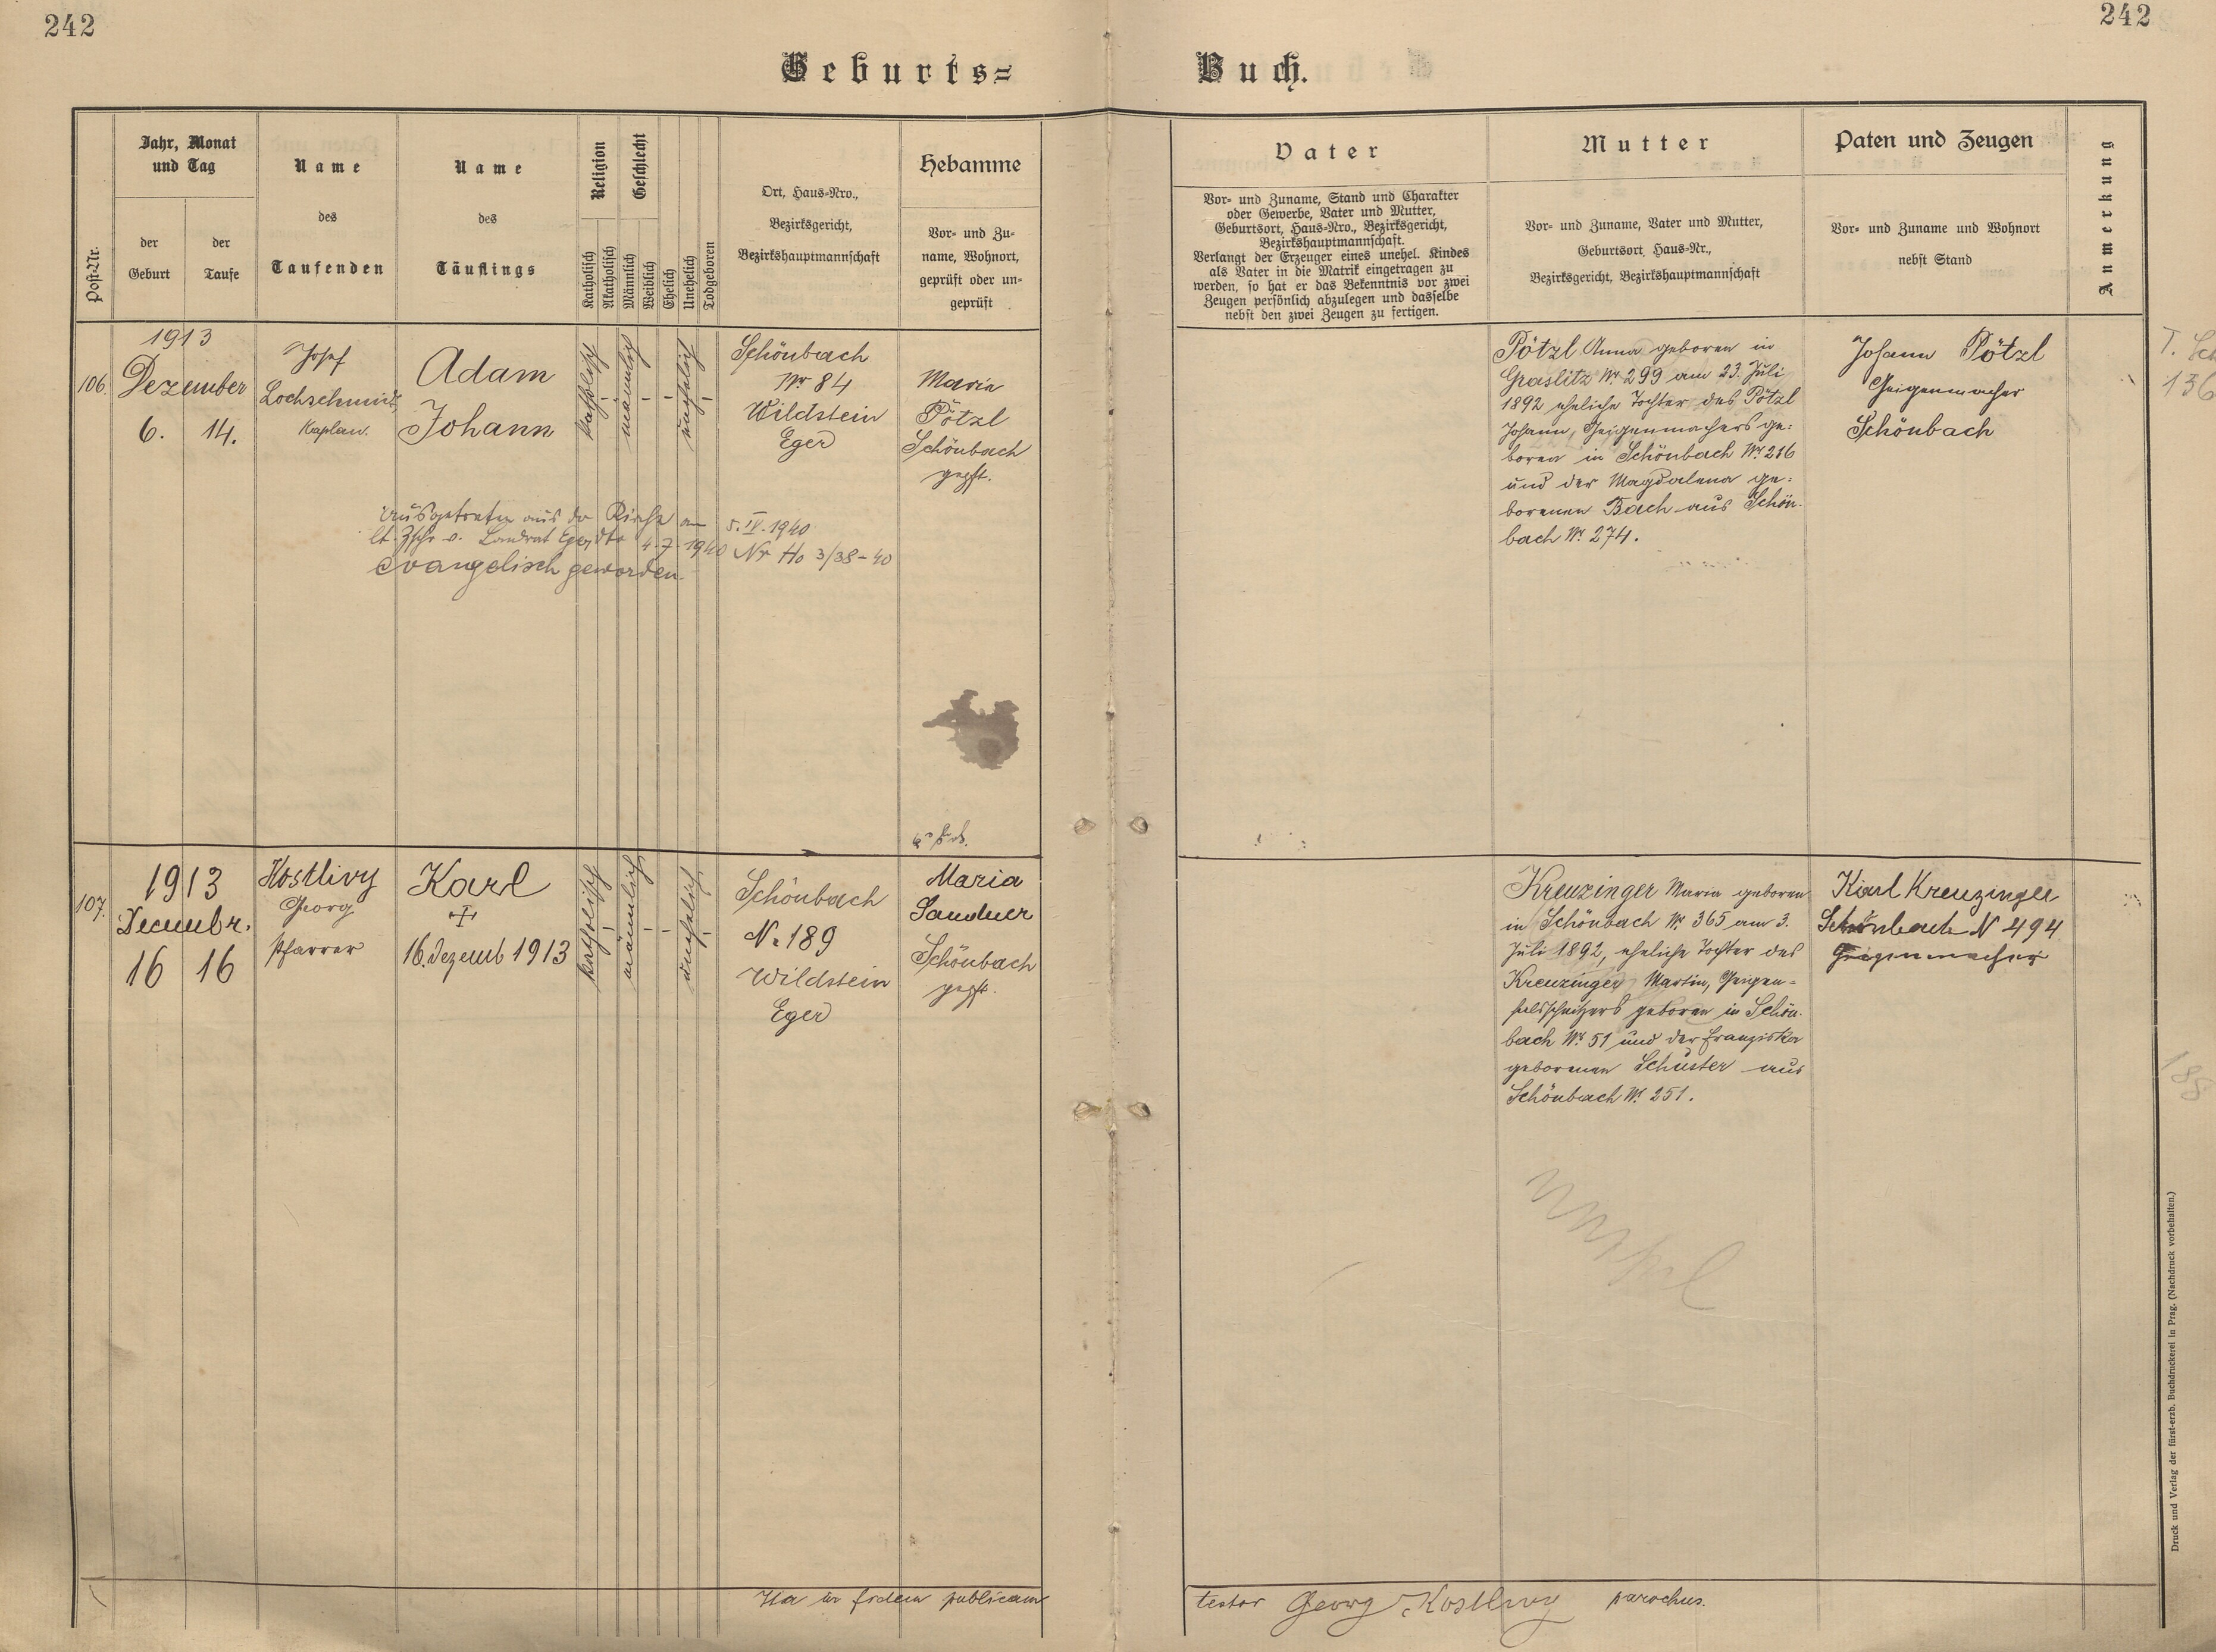 242
242
Geburts=
Buch.
Post-Nr.
Jahr, Monat
und Tag
der
Geburt
der
Taufe
Name
des
Taufenden
Name
des
Täuflings
Religion
Katholisch
Akatholisch
Geschlecht
Männlich
Weiblich
Ehelich
Unehelich
Todgeboren
Ort, Haus-Nro.,
Bezirksgericht,
Bezirkshauptmannschaft
Hebamme
Vor- und Zu-
name, Wohnort,
geprüft oder un-
geprüft
Vater
Vor- und Zuname, Stand und Charakter
oder Gewerbe, Vater und Mutter,
Geburtsort, Haus-Nro., Bezirksgericht,
Bezirkshauptmannschaft.
Verlangt der Erzeuger eines unehel. Kindes
als Vater in die Matrik eingetragen zu
werden, so hat er das Bekenntnis vor zwei
Zeugen persönlich abzulegen und dasselbe
nebst den zwei Zeugen zu fertigen.
Mutter
Vor- und Zuname, Vater und Mutter,
Geburtsort, Haus-Nr.,
Bezirksgericht, Bezirkshauptmannschaft
Paten und Zeugen
Vor- und Zuname und Wohnort
nebst Stand
Anmerkung
106.
1913
Dezember
6. 14.
Josef
Lochschmidt
Kaplan.
Adam
Johann
katholisch
männlich
unehelich
Schönbach
Nr 84
Wildstein
Eger
Maria
Pötzl
Schönbach
gepft.
Ausgetreten aus der Kirche am 5. IV. 1940
lt. Zschr v. Landrat Eger, dto 4. 7. 1940 Nr Ho 3/38-40
evangelisch geworden.
Pötzl Anna geboren in
Graslitz Nr. 299 am 23. Juli
1892 eheliche Tochter des Pötzl
Johann, Geigenmachers ge:
boren in Schönbach Nr. 216
und der Magdalena ge:
borenen Bach aus Schön-
bach Nr. 274.
Johann Pötzl
Geigenmacher
Schönbach
T. Sch
136
107.
1913
Decembr.
16 16
Kostlivy
Georg
Pfarrer
Karl
16. Dezemb 1913
katholisch
männlich
unehelich
Schönbach
No 189
Wildstein
Eger
Maria
Sandner
Schönbach
gepft.
Kreuzinger Maria geboren
in Schönbach Nr. 365 am 3.
Juli 1892, eheliche Tochter des
Kreuzinger Martin, Geigen-
halsschnitzers geboren in Schön-
bach Nr. 51 und der Franziska
geborenen Schuster aus
Schönbach Nr. 251.
Karl Kreuzinger
Schönbach N 494
Geigenmacher
Ita in fidem publicam
testor Georg Kostlivy parochus.
Druck und Verlag der fürst-erzb. Buchdruckerei in Prag. (Nachdruck vorbehalten.)